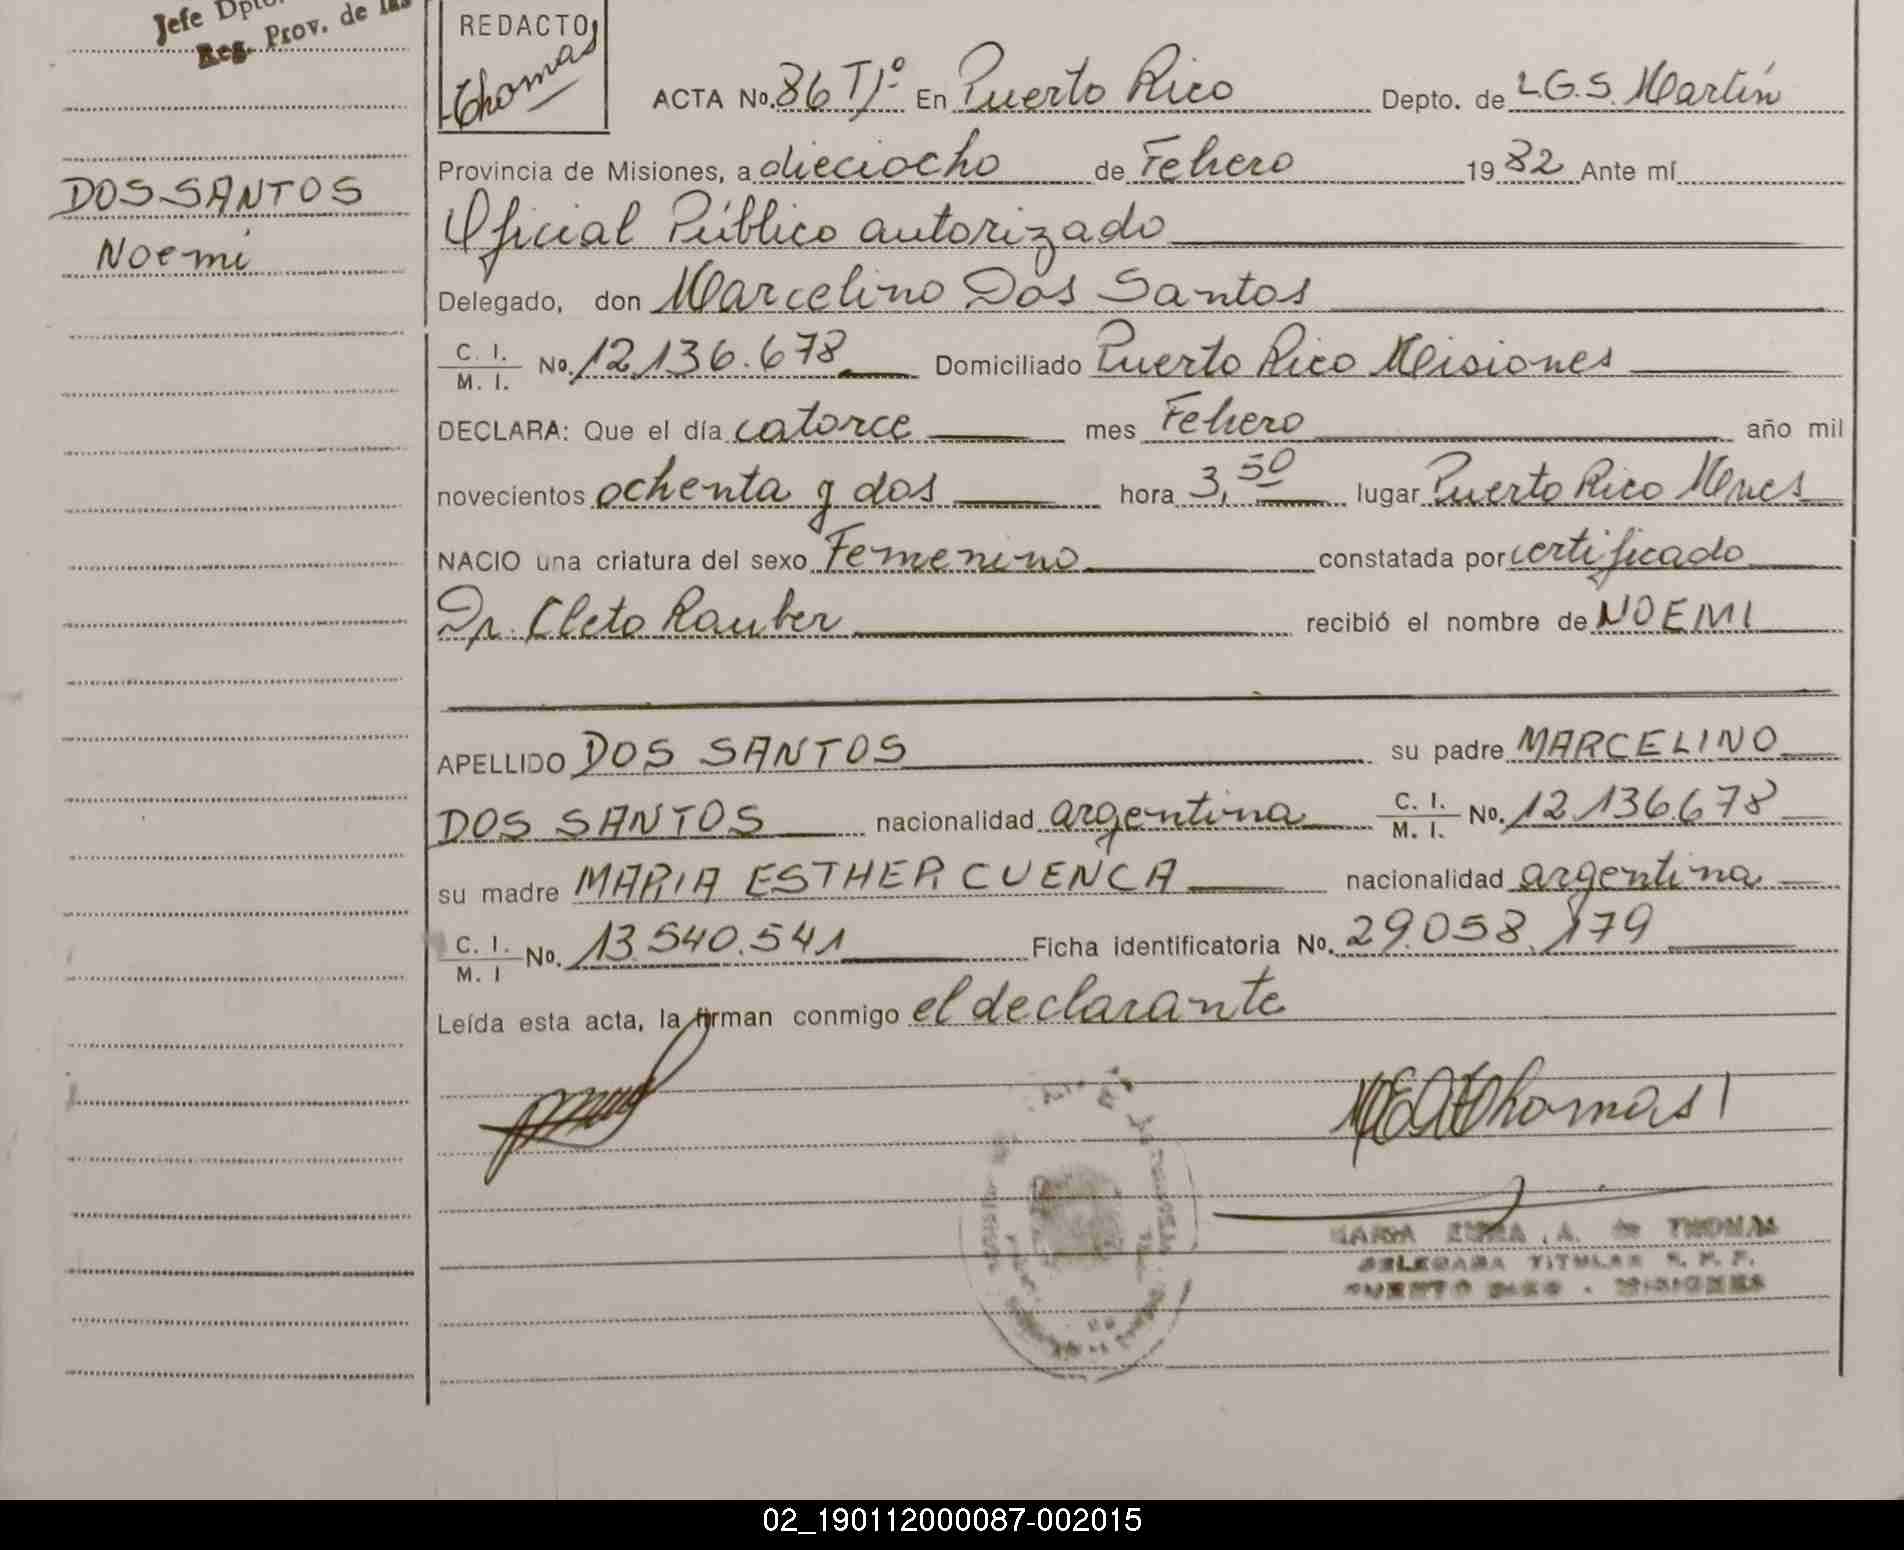 Jefe Dpto.
Reg. Prov. de las
DOS SANTOS
Noemí
REDACTO
Thomas
ACTA No. 86 Tº1º En Puerto Rico Depto. de L.G.S. Martín
Provincia de Misiones, a dieciocho de Febrero 1982 Ante mí
Oficial Público autorizado
Delegado, don Marcelino Dos Santos
C. I. M. I. No. 12.136.678 Domiciliado Puerto Rico Misiones
DECLARA: Que el día catorce mes Febrero año mil
novecientos ochenta y dos hora 3,50 lugar Puerto Rico Mnes
NACIO una criatura del sexo Femenino constatada por certificado
Dr. Cleto Rauber recibió el nombre de NOEMI
APELLIDO DOS SANTOS su padre MARCELINO
DOS SANTOS nacionalidad argentina C. I. M. I. No. 12.136.678
su madre MARIA ESTHER CUENCA nacionalidad argentina
C. I. M. I No. 13.540.541 Ficha identificatoria No. 29.058.179
Leída esta acta, la firman conmigo el declarante
Thomas
MARIA A. de THOMAS
DELEGADA TITULAR R. P. P.
PUERTO RICO - MISIONES
02_190112000087-002015